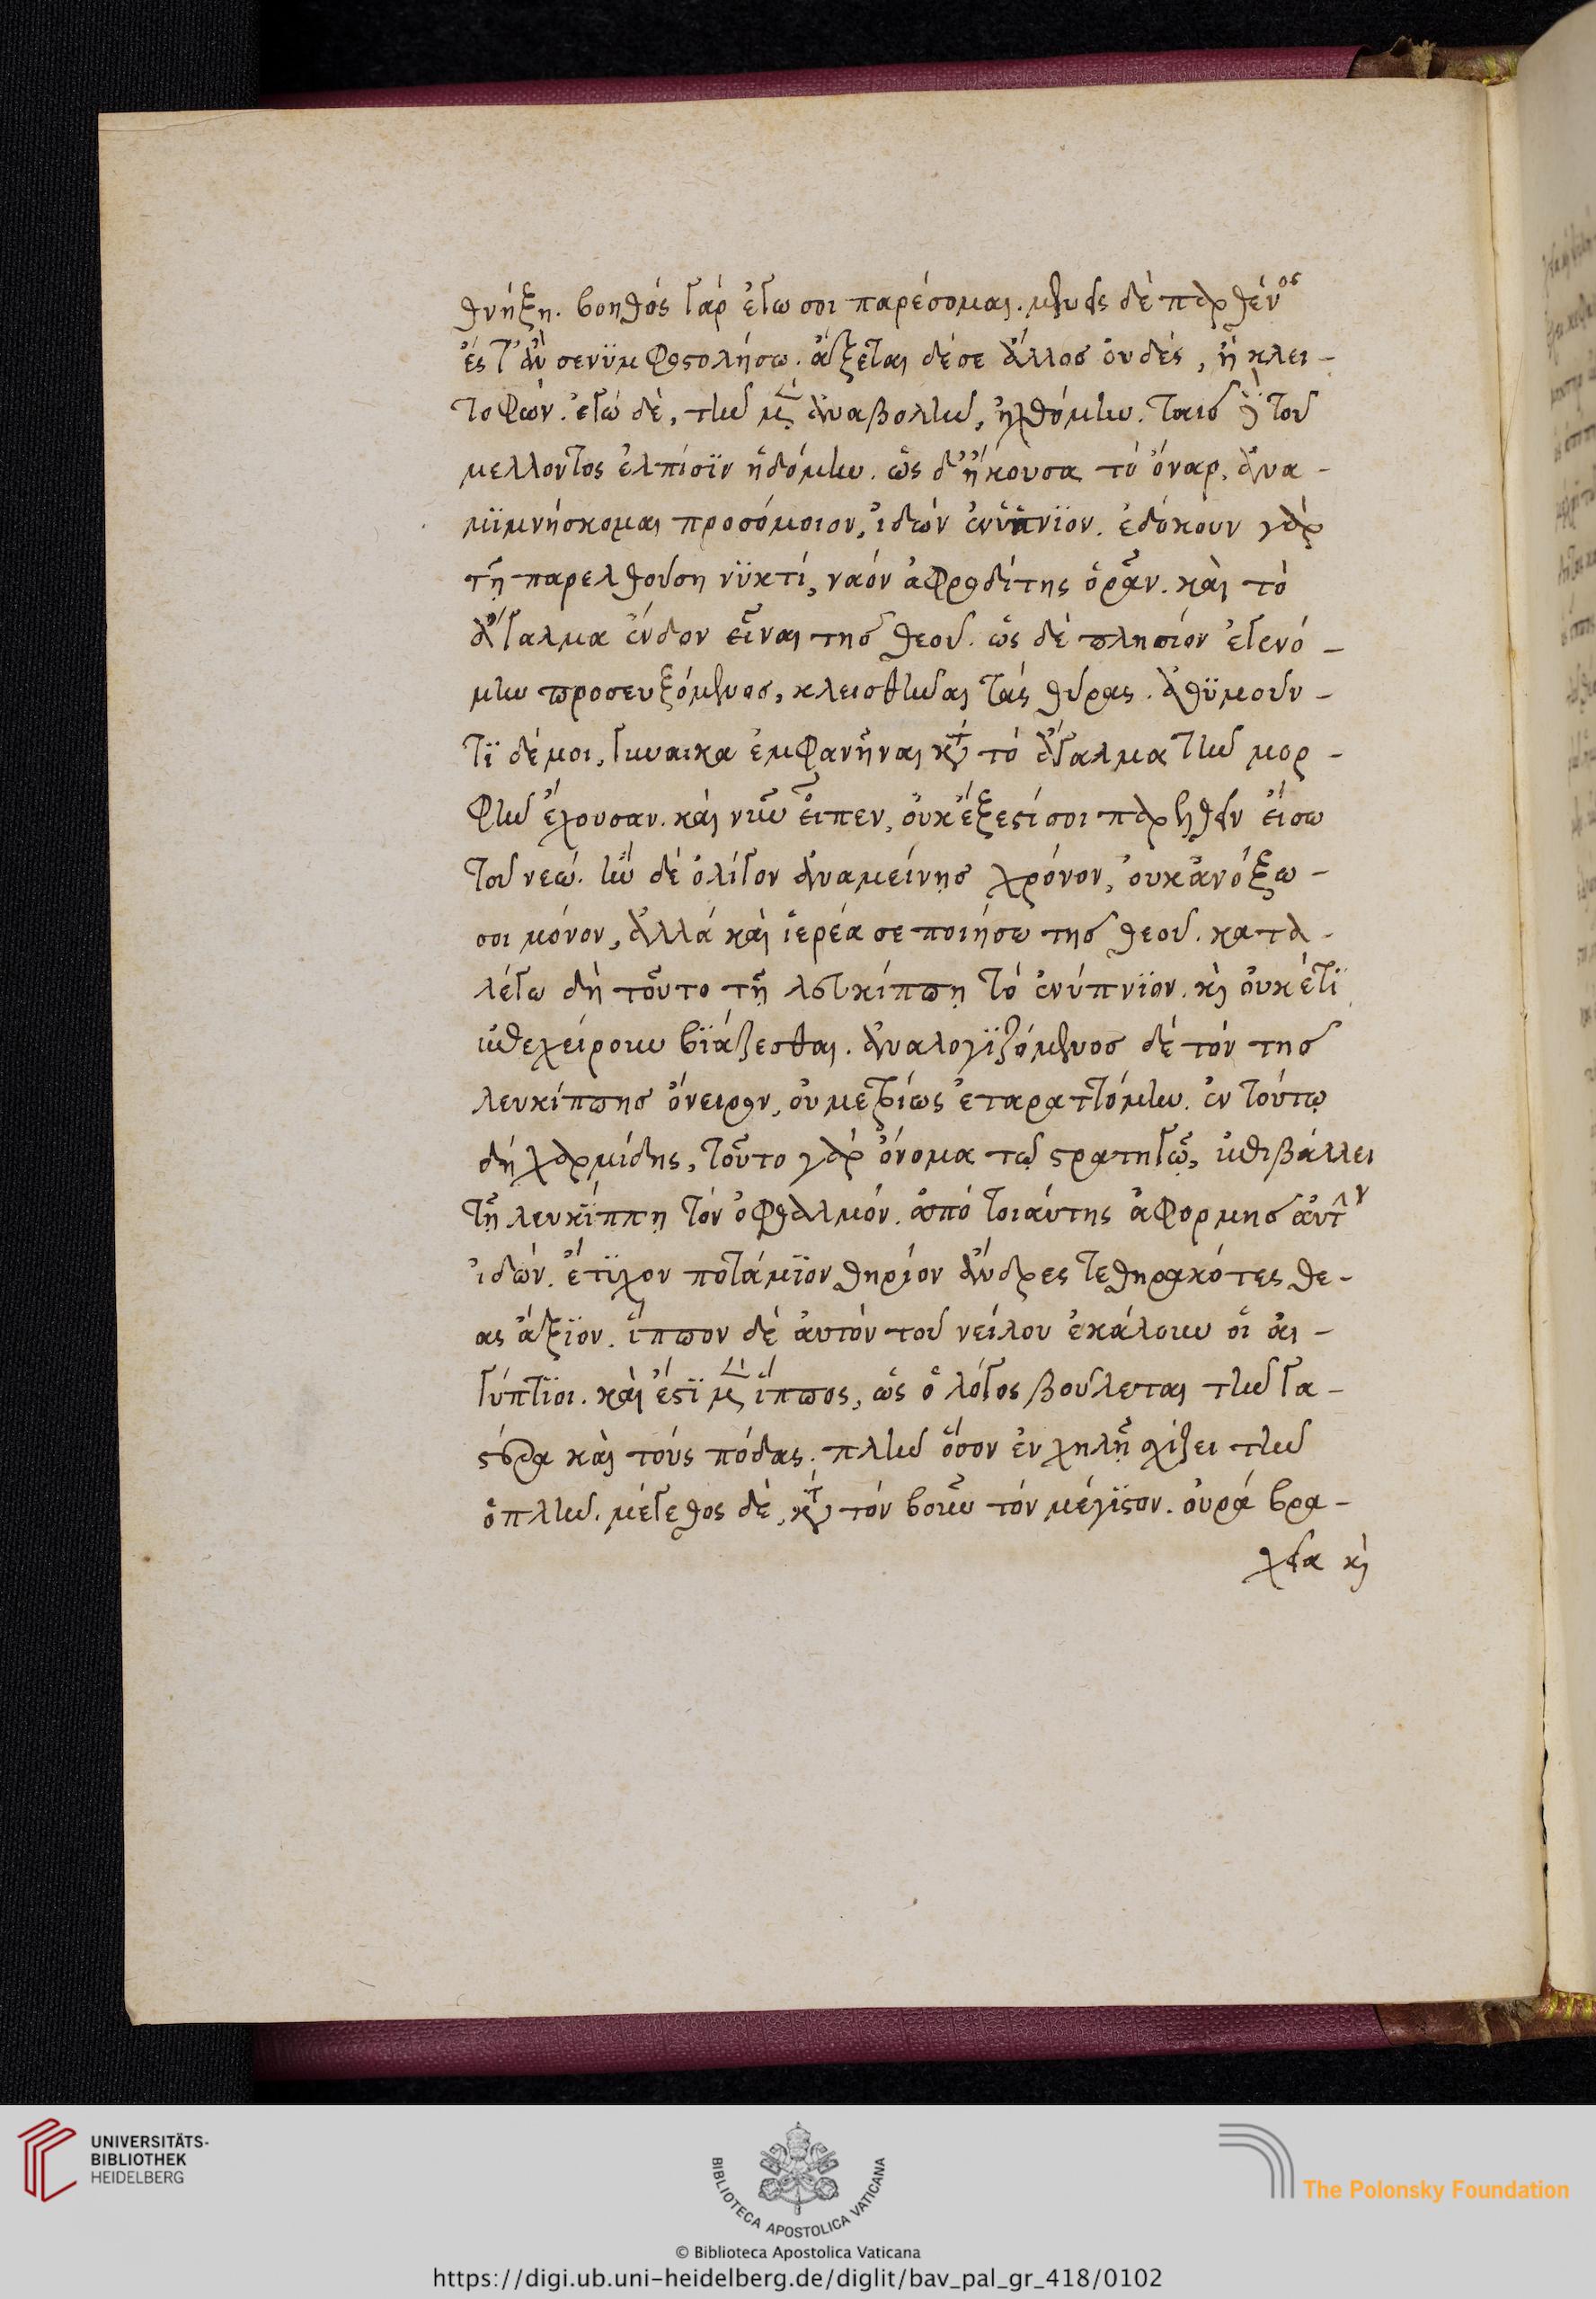 θνήξη. βοηθός γάρ ἐγω σοι παρέσομαι. μενεῖς δὲ παρθένος
ἐς τ' ἄν σε νϋμφοστολήσω. ἄξεται δέ σε ἄλλος οὐδείς, ἢ κλει-
τοφῶν. ἐγώ δὲ, τὴν μὲν ἀναβολὴν, ἠχθόμην. ταῖς δὲ τοῦ
μελλοντος ἐλπίσϊν ἡδόμην. ὡς δ' ἤκουσα τό ὄναρ, ἀνα-
μϊμνήσκομαι προσόμοιον, ἰδὼν ἐνύπνϊον. ἐδόκουν γὰρ
τῇ παρελθούσῃ νϋκτί, ναόν ἀφροδίτης ὁρᾶν. καὶ τὸ
ἄγαλμα ἔνδον εἶναι τῆς θεοῦ. ὡς δὲ πλησίον ἐγενό-
μην προσευξόμενος, κλεισθῆναι τάς θύρας. ἀθϋμοῦν-
τϊ δέ μοι, γυναικα ἐμφανῆναι κατὰ τό ἄγαλμα τὴν μορ-
φὴν ἔχουσαν. καὶ νῦν εἶπεν, οὐκ ἔξεστί σοι παρελθεῖν εἴσω
τοῦ νεώ. ἢν δὲ ὀλίγον ἀναμείνῃς χρόνον, οὐκ ἀνόξω-
σοι μόνον, ἀλλά καὶ ἱερέα σε ποιήσω τῆς θεοῦ. κατα-
λέγω δὴ τοῦτο τῇ λευκίππῃ τό ἐνύπνϊον. καὶ οὐκέτϊ
ἐπεχείρουν βϊάζεσθαι. ἀναλογϊζόμενος δέ τόν τῆς
λευκίππης ὄνειρον, οὐ μετρίως ἐταραττόμην. ἐν τούτῳ
δή χαρμίδης, τοῦτο γὰρ ὄνομα τῷ στρατηγῷ, ἐπιβάλλει
τῇ λευκΐππῃ τόν ὀφθαλμόν. ἀπό τοιάυτης ἀφορμῆς ἀυτὴν
ἰδών. ἔτϋχον ποτάμϊον θηρίον ἄνδρες τεθηρακότες θε-
ας ἄξϊον. ἵππον δέ ἀυτόν τοῦ νείλου ἐκάλουν οἱ ἀι-
γύπτϊοι. καὶ ἔστϊ μὲν ἵππος, ὡς ὁ λόγος βούλεται τὴν γα-
στέρα καὶ τοὺς πόδας. πλὴν ὅσον ἐν χηλῇ σχίζει τὴν
ὁπλὴν. μέγεθος δὲ, κατὰ τόν βοῦν τόν μέγϊστον. οὐρά βρα-
χεῖα καὶ
UNIVERSITÄTS-
BIBLIOTHEK
HEIDELBERG
BIBLIOTECA APOSTOLICA VATICANA
The Polonsky Foundation
© Biblioteca Apostolica Vaticana
https://digi.ub.uni-heidelberg.de/diglit/bav_pal_gr_418/0102